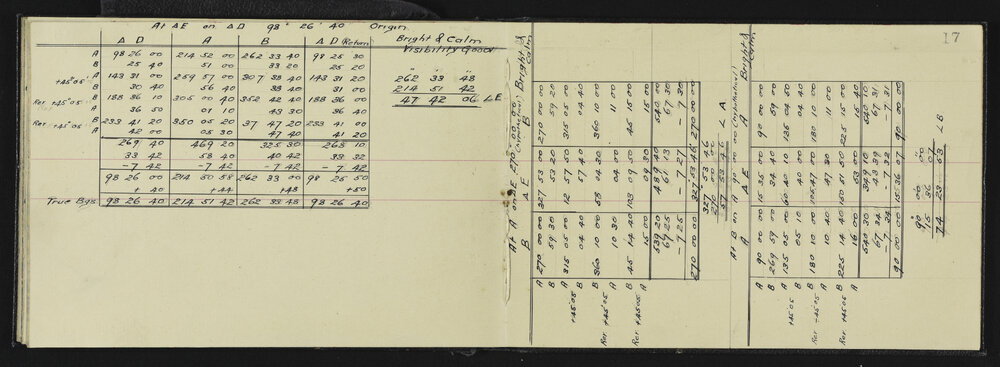 At ΔE on ΔD 98° 26' 40" Origin
Bright & Calm
Visibility Good
Δ D A B Δ D (Return)
A 98 26 00 214 52 00 262 33 40 98 25 30
B 25 40 51 00 33 20 25 20
+45°05' A 143 31 00 259 57 00 307 38 40 143 31 20
B 30 40 56 40 38 40 31 00
Rev. +45°05' B 188 36 10 305 00 40 352 42 40 188 36 00
A 36 50 01 10 43 30 36 40
Rev +45°05' B 233 41 20 350 05 20 37 47 20 233 41 00
A 42 00 05 30 47 40 41 20
269 40 469 20 325 30 268 10
33 42 58 40 40 42 33 32
-7 42 -7 42 -7 42 -7 42
98 26 00 214 50 58 262 33 00 98 25 50
+ 40 +44 +48 +50
True Bgs. 98 26 40 214 51 42 262 33 48 98 26 40
262 33 48
214 51 42
47 42 06 ∠E
At A on ΔE 270.00.00
Bright & Calm
B Δ E B
A 270 00 00 327 53 00 270 00 00
B 59 30 53 20 59 20
+45°05' A 315 05 00 12 57 50 315 05 00
B 04 40 57 40 04 40
Rev +45°05' B 360 10 00 58 04 30 360 10 00
A 10 30 04 00 11 00
Rev +45°05' B 45 14 40 103 09 50 45 15 00
A 15 00 08 30 15 00
539 20 489 40 540 00
67 25 61 13 67 30
-7 25 -7 27 -7 30
270 00 00 327 53 46 270 00 00
327° 53 46
270 00 00
57 53 46 ∠ A
17
At B on A 90 00 00
Bright & Calm
A Δ E A
A 90 00 00 15 35 00 90 00 00
B 269 59 00 34 40 59 00
+45°05 A 135 05 00 60 40 10 135 04 50
B 05 10 40 00 04 50
Rev +45°05 B 180 10 00 105 47 00 180 10 00
A 10 40 47 30 11 00
Rev +45°05 B 225 14 40 150 51 50 225 15 00
A 16 00 53 00 15 30
540 30 349 10 540 10
67 34 43 39 67 31
-7 34 -7 32 -7 31
90 00 00 15 36 07 90 00 00
90° 00 00
15 36 07
74 23 53 ∠B